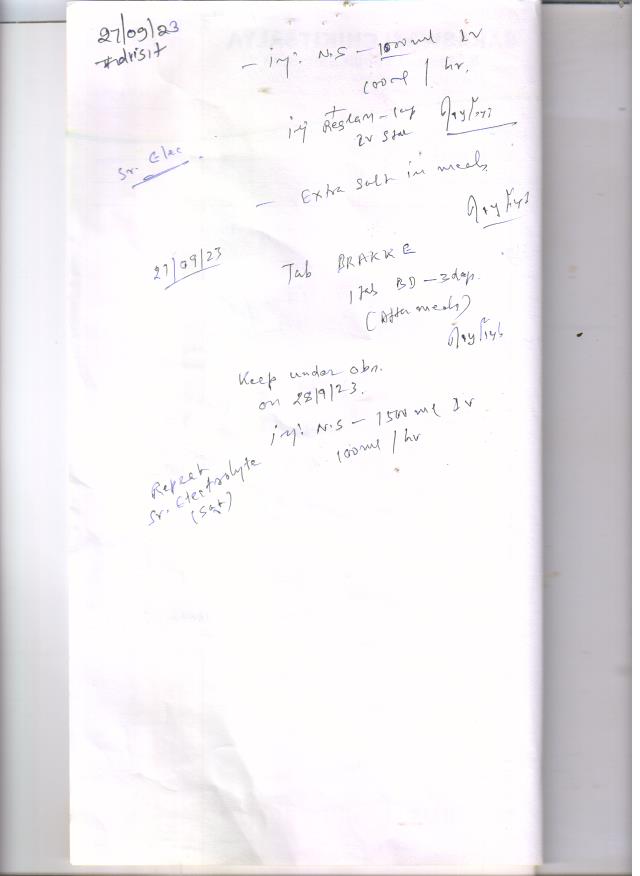 27/09/23
- inj: N.S - 1000ml IV
100ml / hr.
inj Reglan - 1amp
IV Stat
Sr. Elec
- Extra Salt in meals
27/09/23
Tab BRAKKE
1 tab BD - 3 days.
(After meals)
Keep under obn.
on 28/9/23.
inj: N.S - 1500 ml IV
100ml / hr
Repeat
Sr. Electrolyte